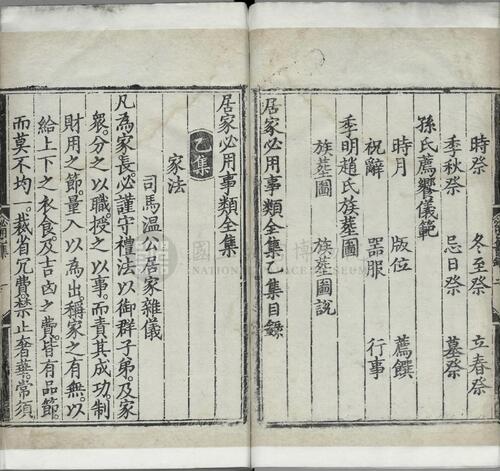 時祭 冬至祭 立春祭
季秋祭 忌日祭 墓祭
孫氏薦饗儀範
時月 版位 薦饌
祝辭 器服 行事
季明趙氏族墓圖
族墓圖 族墓圖說
居家必用事類全集乙集目錄
居家必用事類全集
乙集
家法
司馬溫公居家雜儀
凡為家長必謹守禮法以御群子弟及家
衆。分之以職授之以事。而責其成功。制
財用之節。量入以為出。稱家之有無。以
給上下之衣食及吉凶之費。皆有品節。
而莫不均一。裁省冗費禁止奢華常須